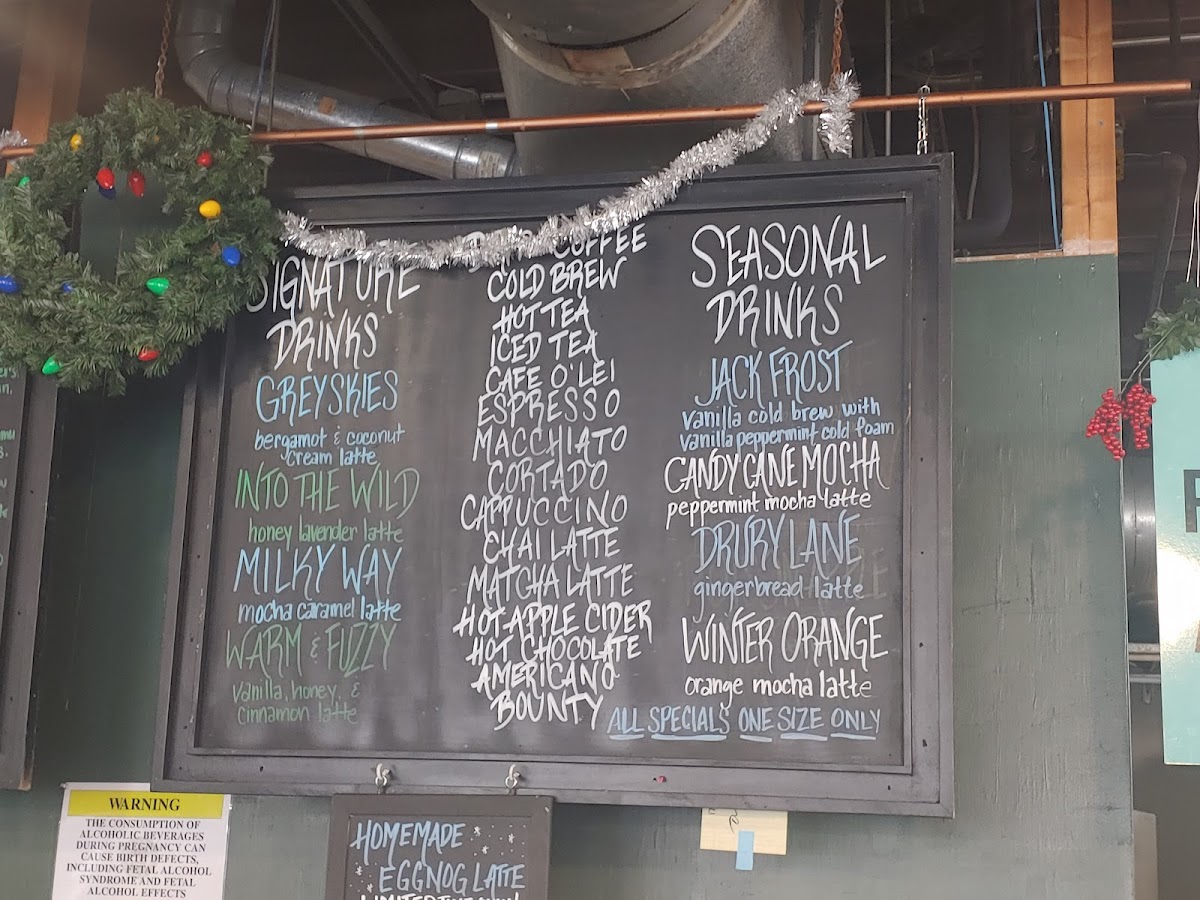 SIGNATURE
DRINKS
GREY SKIES
bergamot & coconut
cream latte
INTO THE WILD
honey lavender latte
MILKY WAY
mocha caramel latte
WARM & FUZZY
Vanilla, honey, &
cinnamon latte
COFFEE
COLD BREW
HOT TEA
ICED TEA
CAFE O'LEI
ESPRESSO
MACCHIATO
CORTADO
CAPPUCCINO
CHAI LATTE
MATCHA LATTE
HOT APPLE CIDER
HOT CHOCOLATE
AMERICANO
BOUNTY
SEASONAL
DRINKS
JACK FROST
Vanilla cold brew with
vanilla peppermint cold foam
CANDY CANE MOCHA
peppermint mocha latte
DRURY LANE
gingerbread latte
WINTER ORANGE
orange mocha latte
ALL SPECIALS ONE SIZE ONLY
WARNING
THE CONSUMPTION OF
ALCOHOLIC BEVERAGES
DURING PREGNANCY CAN
CAUSE BIRTH DEFECTS,
INCLUDING FETAL ALCOHOL
SYNDROME AND FETAL
ALCOHOL EFFECTS
HOMEMADE
EGGNOG LATTE